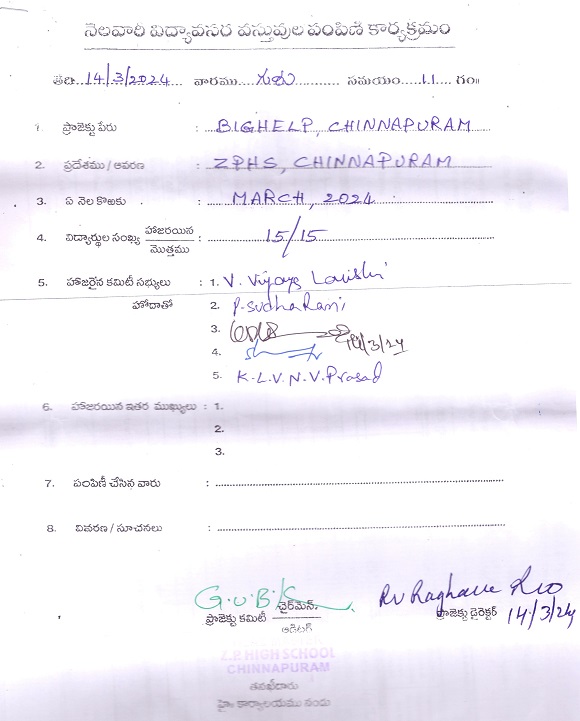 నెలవారీ విద్యావసర వస్తువుల పంపిణీ కార్యక్రమం
తేది: 14/3/2024 వారము గురు సమయం 11 గం॥
1. ప్రాజెక్టు పేరు : BIGHELP, CHINNAPURAM
2. ప్రదేశము / ఆవరణ : ZPHS, CHINNAPURAM
3. ఏ నెల కొఱకు : MARCH, 2024
4. విద్యార్థుల సంఖ్య హాజరయిన / మొత్తము : 15/15
5. హాజరైన కమిటీ సభ్యులు : 1. V. Vijaya
హోదాతో 2. P. Sudha Rani
3. 14/3/24
4.
5. K.L.V.N.V. Prasad
6. హాజరయిన ఇతర ముఖ్యులు : 1.
2.
3.
7. పంపిణీ చేసిన వారు :
8. వివరణ / సూచనలు :
G.U.B.K RV Raghava Rao
ప్రాజెక్టు కమిటీ చైర్మెన్. / ఆడిటర్ ప్రాజెక్టు డైరెక్టర్ 14/3/24
Z.P. HIGH SCHOOL
CHINNAPURAM
తనఖీదారు
హైం కార్యాలయము నందు